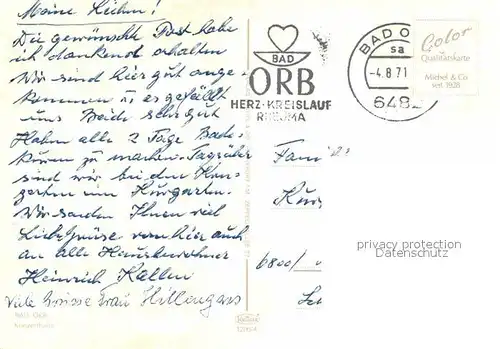 Meine Lieben!
Die gewünschte Post habe
ich dankend erhalten
Wir sind hier gut ange-
kommen u. es gefällt
uns Beide sehr gut
Haben alle 2 Tage Bade-
kuren zu machen. Tagsüber
sind wir bei den Kon-
zerten im Kurgarten.
Wir senden Ihnen viel
Liebe Grüsse von hier auch
an alle Hausbewohner
Heinrich Kallen
Viele Grüsse Frau Hillengass
BAD
ORB
HERZ-KREISLAUF
RHEUMA
BAD O
sa
-4.8.71
648
Color
Qualitätskarte
Michel & Co
seit 1928
Fami
Kurs
6800/
privacy protection
Datenschutz
BAD ORB
Konzerthalle